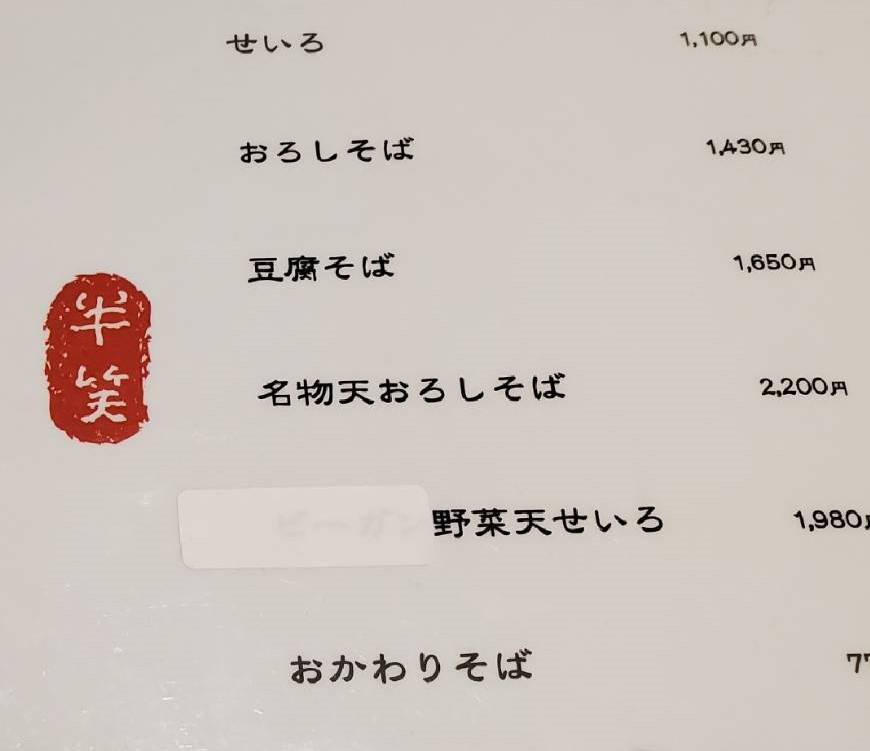 せいろ 1,100円
おろしそば 1,430円
豆腐そば 1,650円
半笑
名物天おろしそば 2,200円
ビーガン野菜天せいろ 1,980円
おかわりそば 77